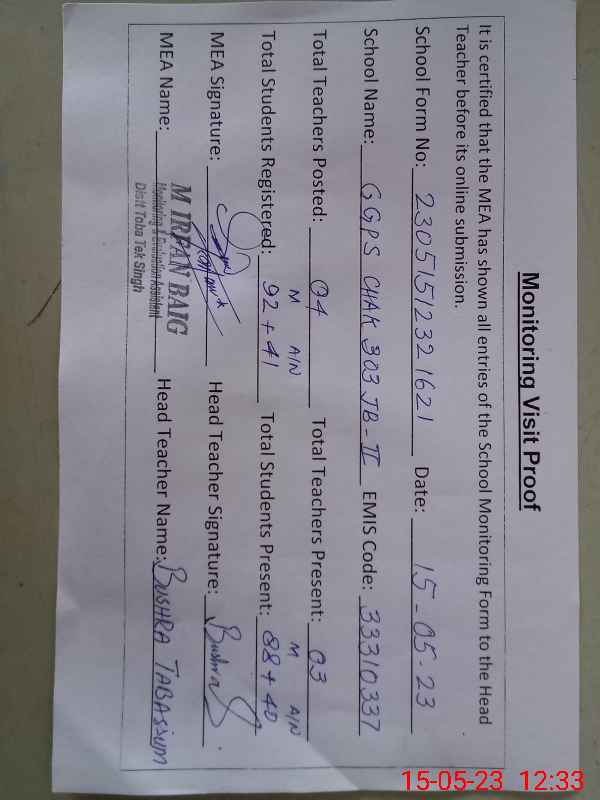 Monitoring Visit Proof
It is certified that the MEA has shown all entries of the School Monitoring Form to the Head
Teacher before its online submission.
School Form No: 23051512321621 Date: 15-05-23
School Name: GGPS CHAK 303 JB-II EMIS Code: 33310337
Total Teachers Posted: 04 Total Teachers Present: 03
M A/N M A/N
Total Students Registered: 92+41 Total Students Present: 88+40
MEA Signature: Head Teacher Signature: Bushra
MEA Name: M IRFAN BAIG Head Teacher Name: BUSHRA TABASSUM
Monitoring & Evaluation Assistant
Distt Toba Tek Singh
15-05-23 12:33